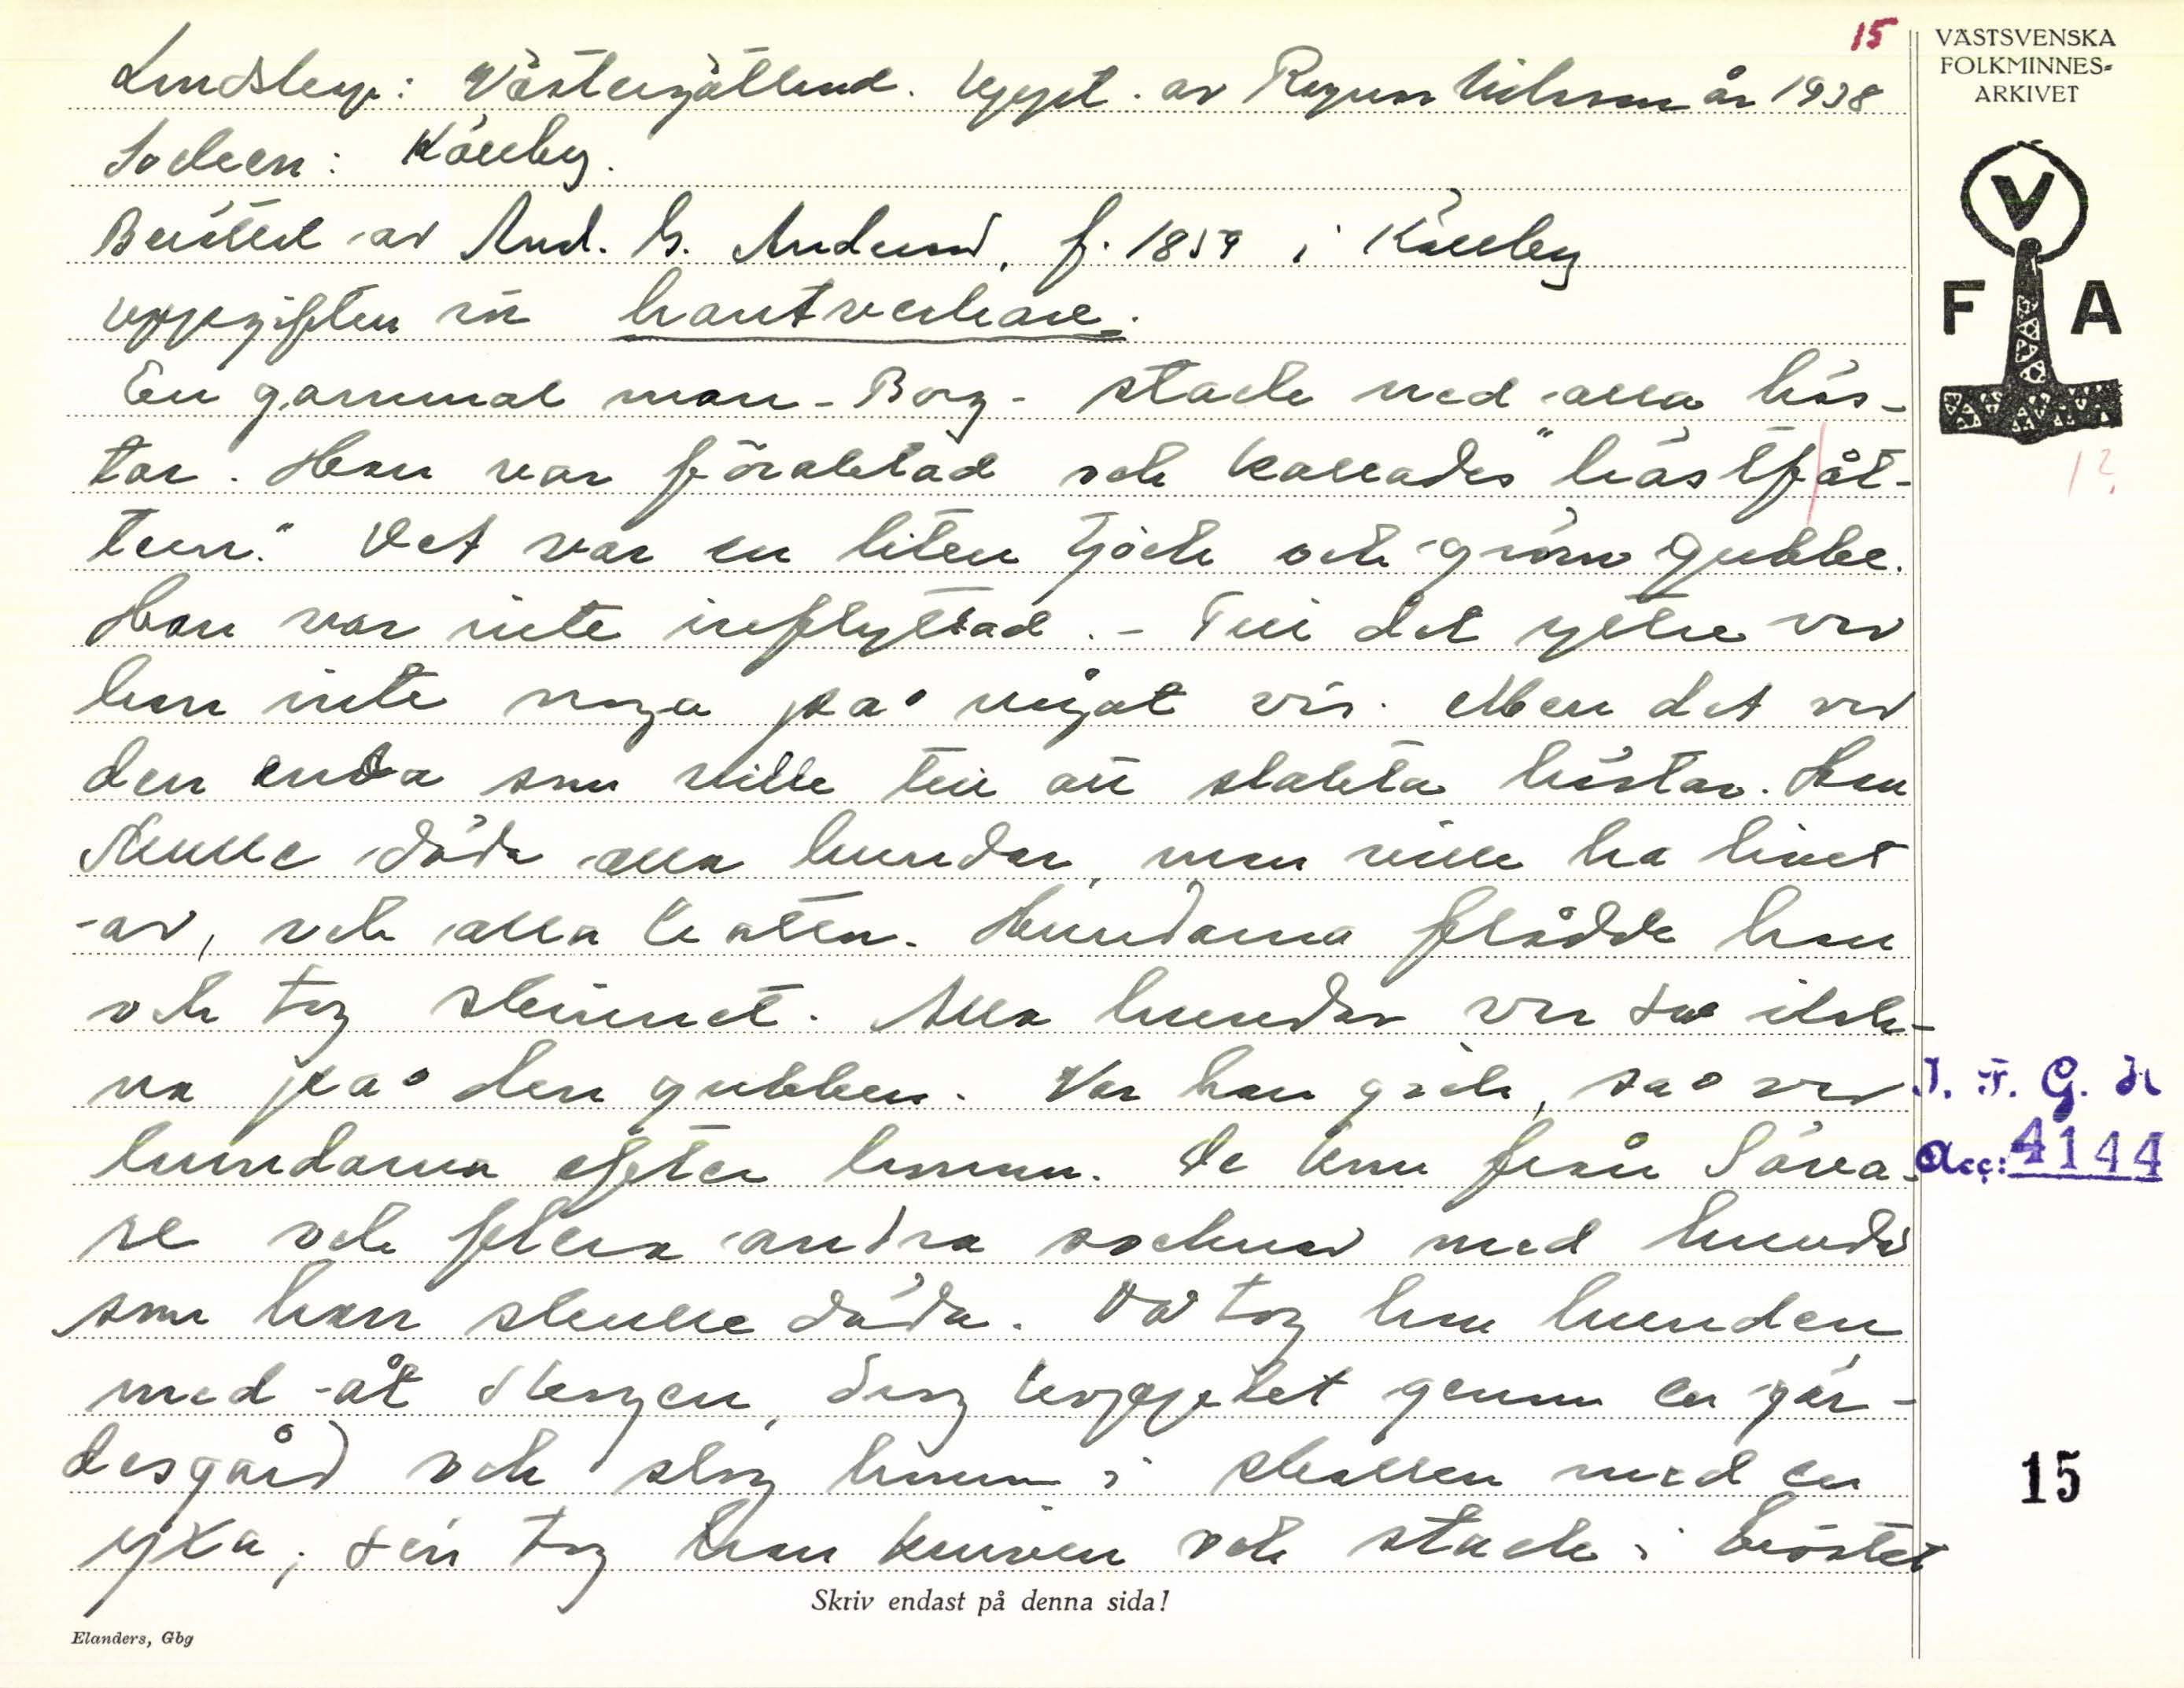 15
VÄSTSVENSKA
FOLKMINNES-
ARKIVET
V
F A
Landskap: Västergötland. Uppt. av Ragnar Nilsson år 1938
Socken: Källby.
Berättat av And. G. Anderson, f. 1859 i Källby
uppgiften rör hantverkare.
En gammal man - Borg - stack ned alla häs-
tar. Han var föraktad och kallades "hästfåt-
ten." Det var en liten tjock och grov gubbe.
Han var inte inflyttad. - Till det yttre var
han inte noga på något vis. Men det var
den enda som ville till att slakta hästar. Han
skulle döda alla hundar, man ville ha livet
av, och alla katter. Hundarna flådde han
och tog skinnet. Alla hundar var så ilsk-
na på den gubben. Var han gick, så var
hundarna efter honom. De kom från Säva-
re och flera andra socknar med hundar
som han skulle döda. Då tog han hunden
med åt skogen, drog kopplet genom en gär-
desgård och slog honom i skallen med en
yxa; sen tog han kniven och stack i bröstet
12
I. F. G. H
Acc: 4144
15
Skriv endast på denna sida!
Elanders, Gbg